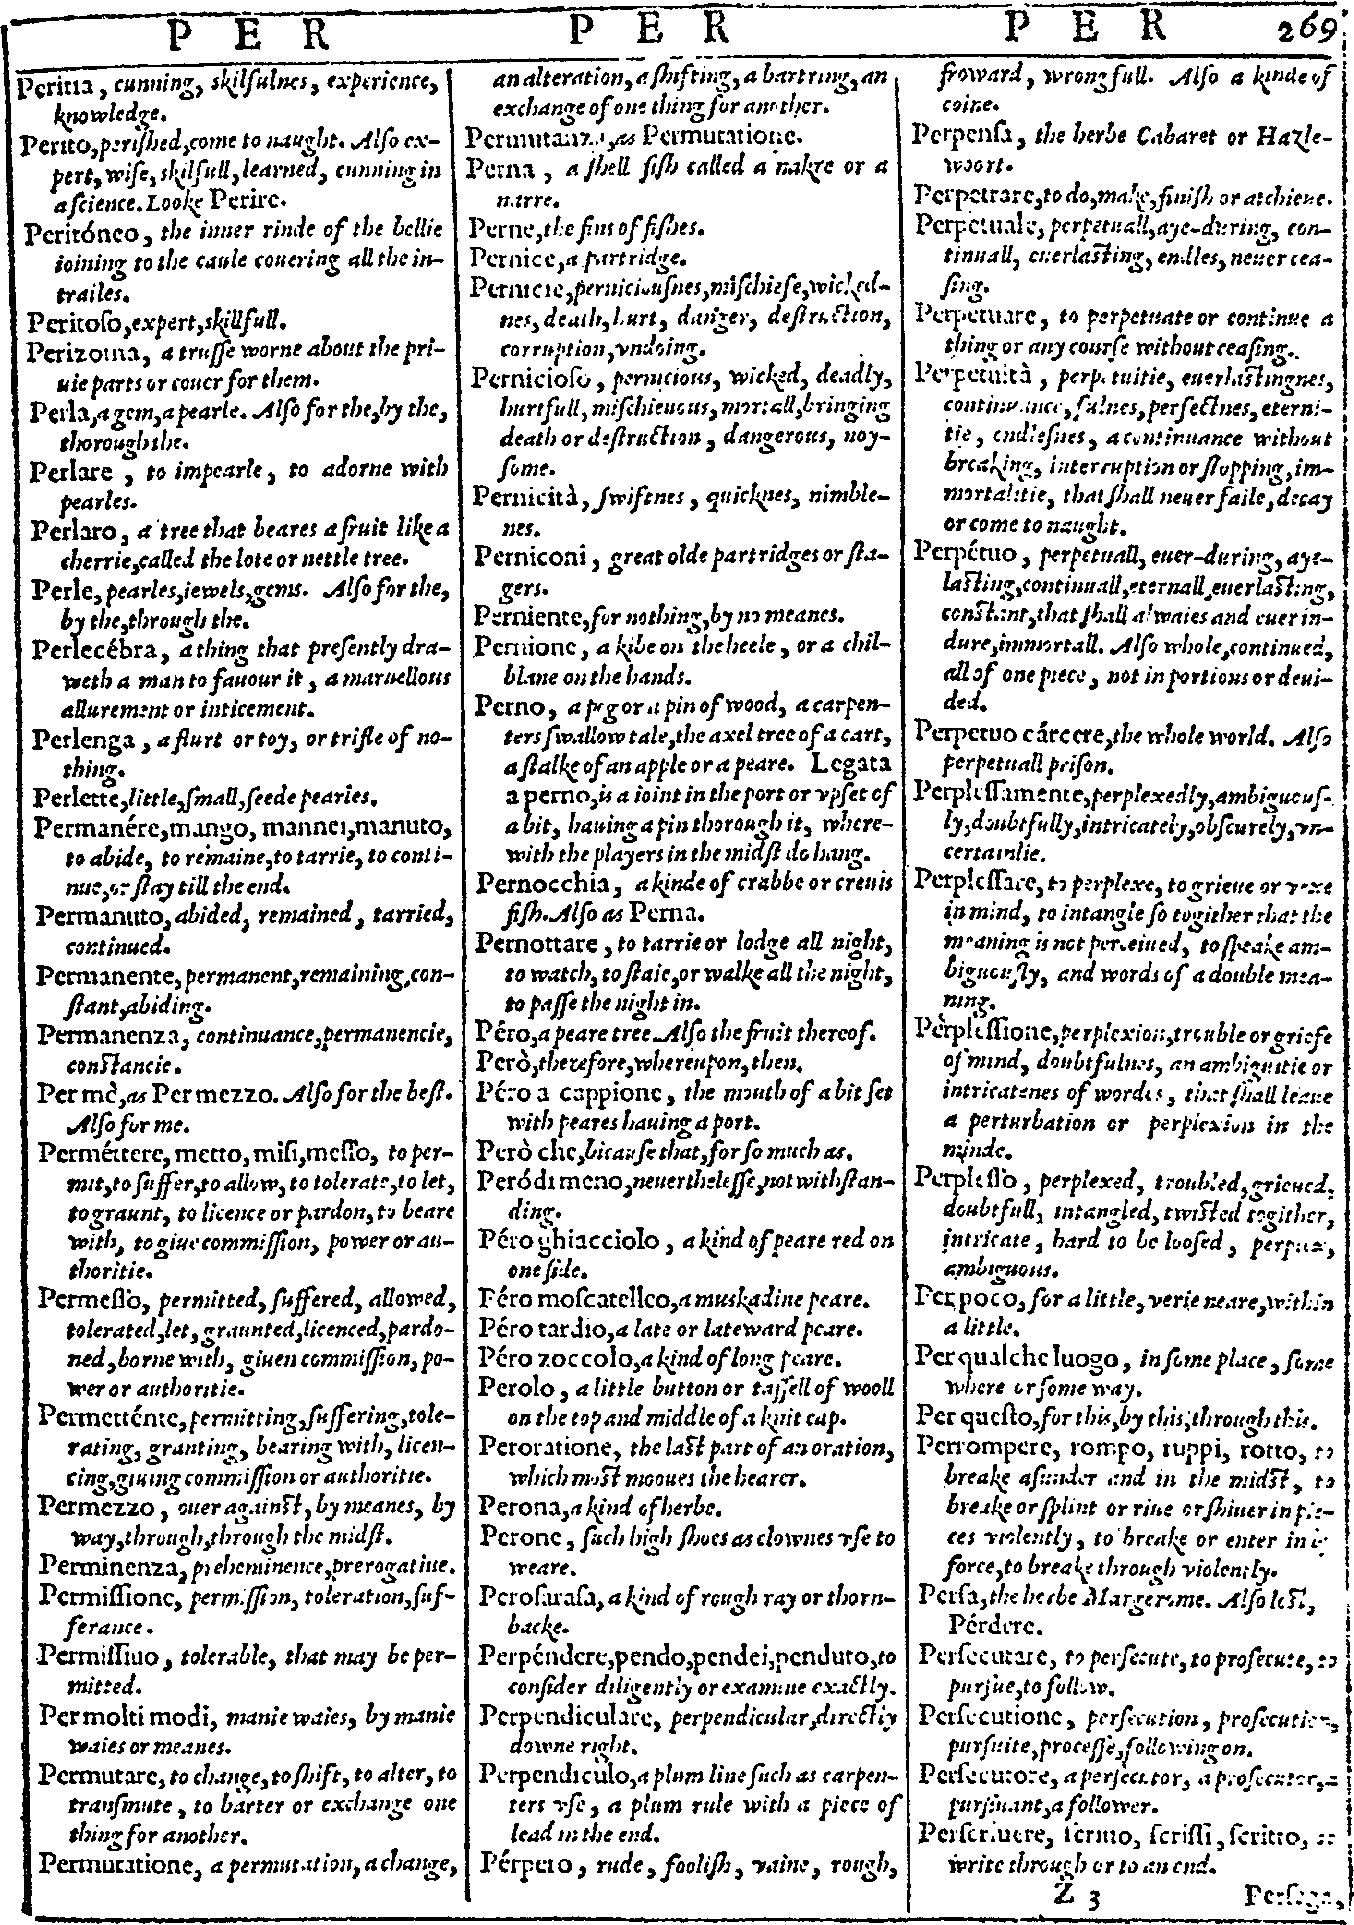 PER PER PER 269
Peritia, cunning, skilfulnes, experience,
knowledge.
Perito, perished, come to naught. Also ex-
pert, wise, skilfull, learned, cunning in
a science. Looke Perire.
Peritóneo, the inner rinde of the bellie
ioining to the caule couering all the in-
trailes.
Peritoso, expert, skillfull.
Perizoma, a trusse worne about the pri-
uie parts or couer for them.
Perla, a gem, a pearle. Also for the, by the,
thorough the.
Perlare, to impearle, to adorne with
pearles.
Perlaro, a tree that beares a fruit like a
cherrie, called the lote or nettle tree.
Perle, pearles, iewels, gems. Also for the,
by the, through the.
Perlecébra, a thing that presently dra-
weth a man to fauour it, a maruellous
allurement or inticement.
Perlenga, a flurt or toy, or trifle of no-
thing.
Perlette, little, small, seede pearles.
Permanére, mango, mannei, manuto,
to abide, to remaine, to tarrie, to conti-
nue, or stay till the end.
Permanuto, abided, remained, tarried,
continued.
Permanente, permanent, remaining, con-
stant, abiding.
Permanenza, continuance, permanencie,
constancie.
Per mè, as Per mezzo. Also for the best.
Also for me.
Perméttere, metto, misi, messo, to per-
mit, to suffer, to allow, to tolerate, to let,
to graunt, to licence or pardon, to beare
with, to giue commission, power or au-
thoritie.
Permesso, permitted, suffered, allowed,
tolerated, let, graunted, licenced, pardo-
ned, borne with, giuen commission, po-
wer or authoritie.
Permetténte, permitting, suffering, tole-
rating, granting, bearing with, licen-
cing, giuing commission or authoritie.
Permezzo, ouer against, by meanes, by
way, through, through the midst.
Perminenza, preheminence, prerogatiue.
Permissione, permission, toleration, suf-
ferance.
Permissiuo, tolerable, that may be per-
mitted.
Per molti modi, manie waies, by manie
waies or meanes.
Permutare, to change, to shift, to alter, to
transmute, to barter or exchange one
thing for another.
Permutatione, a permutation, a change,
an alteration, a shifting, a bartring, an
exchange of one thing for another.
Permutanza, as Permutatione.
Perna, a shell fish called a nakre or a
narre.
Perne, the fins of fishes.
Pernice, a partridge.
Pernicie, perniciousnes, mischiefe, wicked-
nes, death, hurt, danger, destruction,
corruption, vndoing.
Pernicioso, pernicious, wicked, deadly,
hurtfull, mischieuous, mortall, bringing
death or destruction, dangerous, noy-
some.
Pernicità, swiftnes, quicknes, nimble-
nes.
Perniconi, great olde partridges or sta-
gers.
Perniente, for nothing, by no meanes.
Pernione, a kibe on the heele, or a chil-
blane on the hands.
Perno, a peg or a pin of wood, a carpen-
ters swallow tale, the axel tree of a cart,
a stalke of an apple or a peare. Legata
a perno, is a ioint in the port or vpset of
a bit, hauing a pin thorough it, where-
with the players in the midst do hang.
Pernocchia, a kinde of crabbe or creuis
fish. Also as Perna.
Pernottare, to tarrie or lodge all night,
to watch, to staie, or walke all the night,
to passe the night in.
Péro, a peare tree. Also the fruit thereof.
Però, therefore, whereupon, then.
Péro a cappione, the mouth of a bit set
with peares hauing a port.
Però che, bicause that, for so much as.
Peródi meno, neuerthelesse, not withstan-
ding.
Péro ghiacciolo, a kind of peare red on
one side.
Péro moscatelleo, a muskadine peare.
Péro tardio, a late or lateward peare.
Péro zoccolo, a kind of long peare.
Perolo, a little button or tassell of wooll
on the top and middle of a knit cap.
Peroratione, the last part of an oration,
which most mooues the hearer.
Perona, a kind of herbe.
Perone, such high shoes as clownes vse to
weare.
Perosarasa, a kind of rough ray or thorn-
backe.
Perpéndere, pendo, pendei, penduto, to
consider diligently or examine exactly.
Perpendiculare, perpendicular, directly
downe right.
Perpendiculo, a plum line such as carpen-
ters vse, a plum rule with a piece of
lead in the end.
Pérpero, rude, foolish, vaine, rough,
froward, wrongfull. Also a kinde of
coine.
Perpensa, the herbe Cabaret or Hazle-
woort.
Perpetrare, to do, make, finish or atchieue.
Perpetuale, perpetuall, aye-during, con-
tinuall, euerlasting, endles, neuer cea-
sing.
Perpetuare, to perpetuate or continue a
thing or any course without ceasing.
Perpetuità, perpetuitie, euerlastingnes,
continuance, fulnes, perfectnes, eterni-
tie, endlesnes, a continuance without
breaking, interruption or stopping, im-
mortalitie, that shall neuer faile, decay
or come to naught.
Perpétuo, perpetuall, euer-during, aye-
lasting, continuall, eternall, euerlasting,
constant, that shall alwaies and euer in-
dure, immortall. Also whole, continued,
all of one piece, not in portions or deui-
ded.
Perpetuo cárcere, the whole world. Also
perpetuall prison.
Perplessamente, perplexedly, ambiguous-
ly, doubtfully, intricately, obscurely, vn-
certainlie.
Perplessare, to perplexe, to grieue or vexe
in mind, to intangle so togither that the
meaning is not perceiued, to speake am-
biguously, and words of a double mea-
ning.
Perplessione, perplexion, trouble or griefe
of mind, doubtfulnes, an ambiguitie or
intricatenes of wordes, that shall leaue
a perturbation or perplexion in the
minde.
Perplesso, perplexed, troubled, grieued,
doubtfull, intangled, twisted togither,
intricate, hard to be loosed,
ambiguous.
Per poco, for a little, verie neare, within
a little.
Per qualche luogo, in some place, some
where or some way.
Per questo, for this, by this, through this.
Perrompere, rompo, ruppi, rotto, to
breake asunder and in the midst, to
breake or splint or riue or shiuer in pie-
ces violently, to breake or enter in by
force, to breake through violently.
Persa, the herbe Margerome. Also lost,
Pérdere.
Persecutare, to persecute, to prosecute, to
pursue, to follow.
Persecutione, persecution, prosecution,
pursuite, processe, following on.
Persecutore, a persecutor, a prosecutor, a
pursuant, a follower.
Perscriuere, scriuo, scrissi, scritto, to
write through or to an end.
Z 3 Persega,